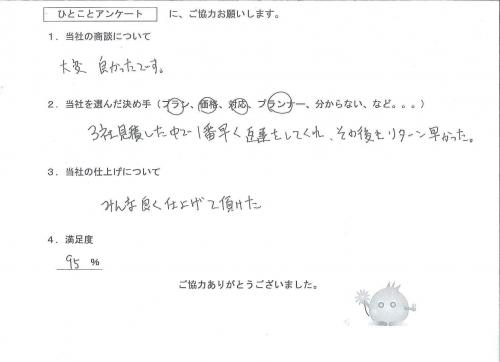 ひとことアンケート に、ご協力お願いします。
1．当社の商談について
大変 良かったです。
2．当社を選んだ決め手（プラン、価格、対応、プランナー、分からない、など。。。）
3社見積した中で1番早く返事をしてくれ、その後もリターン早かった。
3．当社の仕上げについて
みんな良く仕上げて頂けた
4．満足度
95 %
ご協力ありがとうございました。